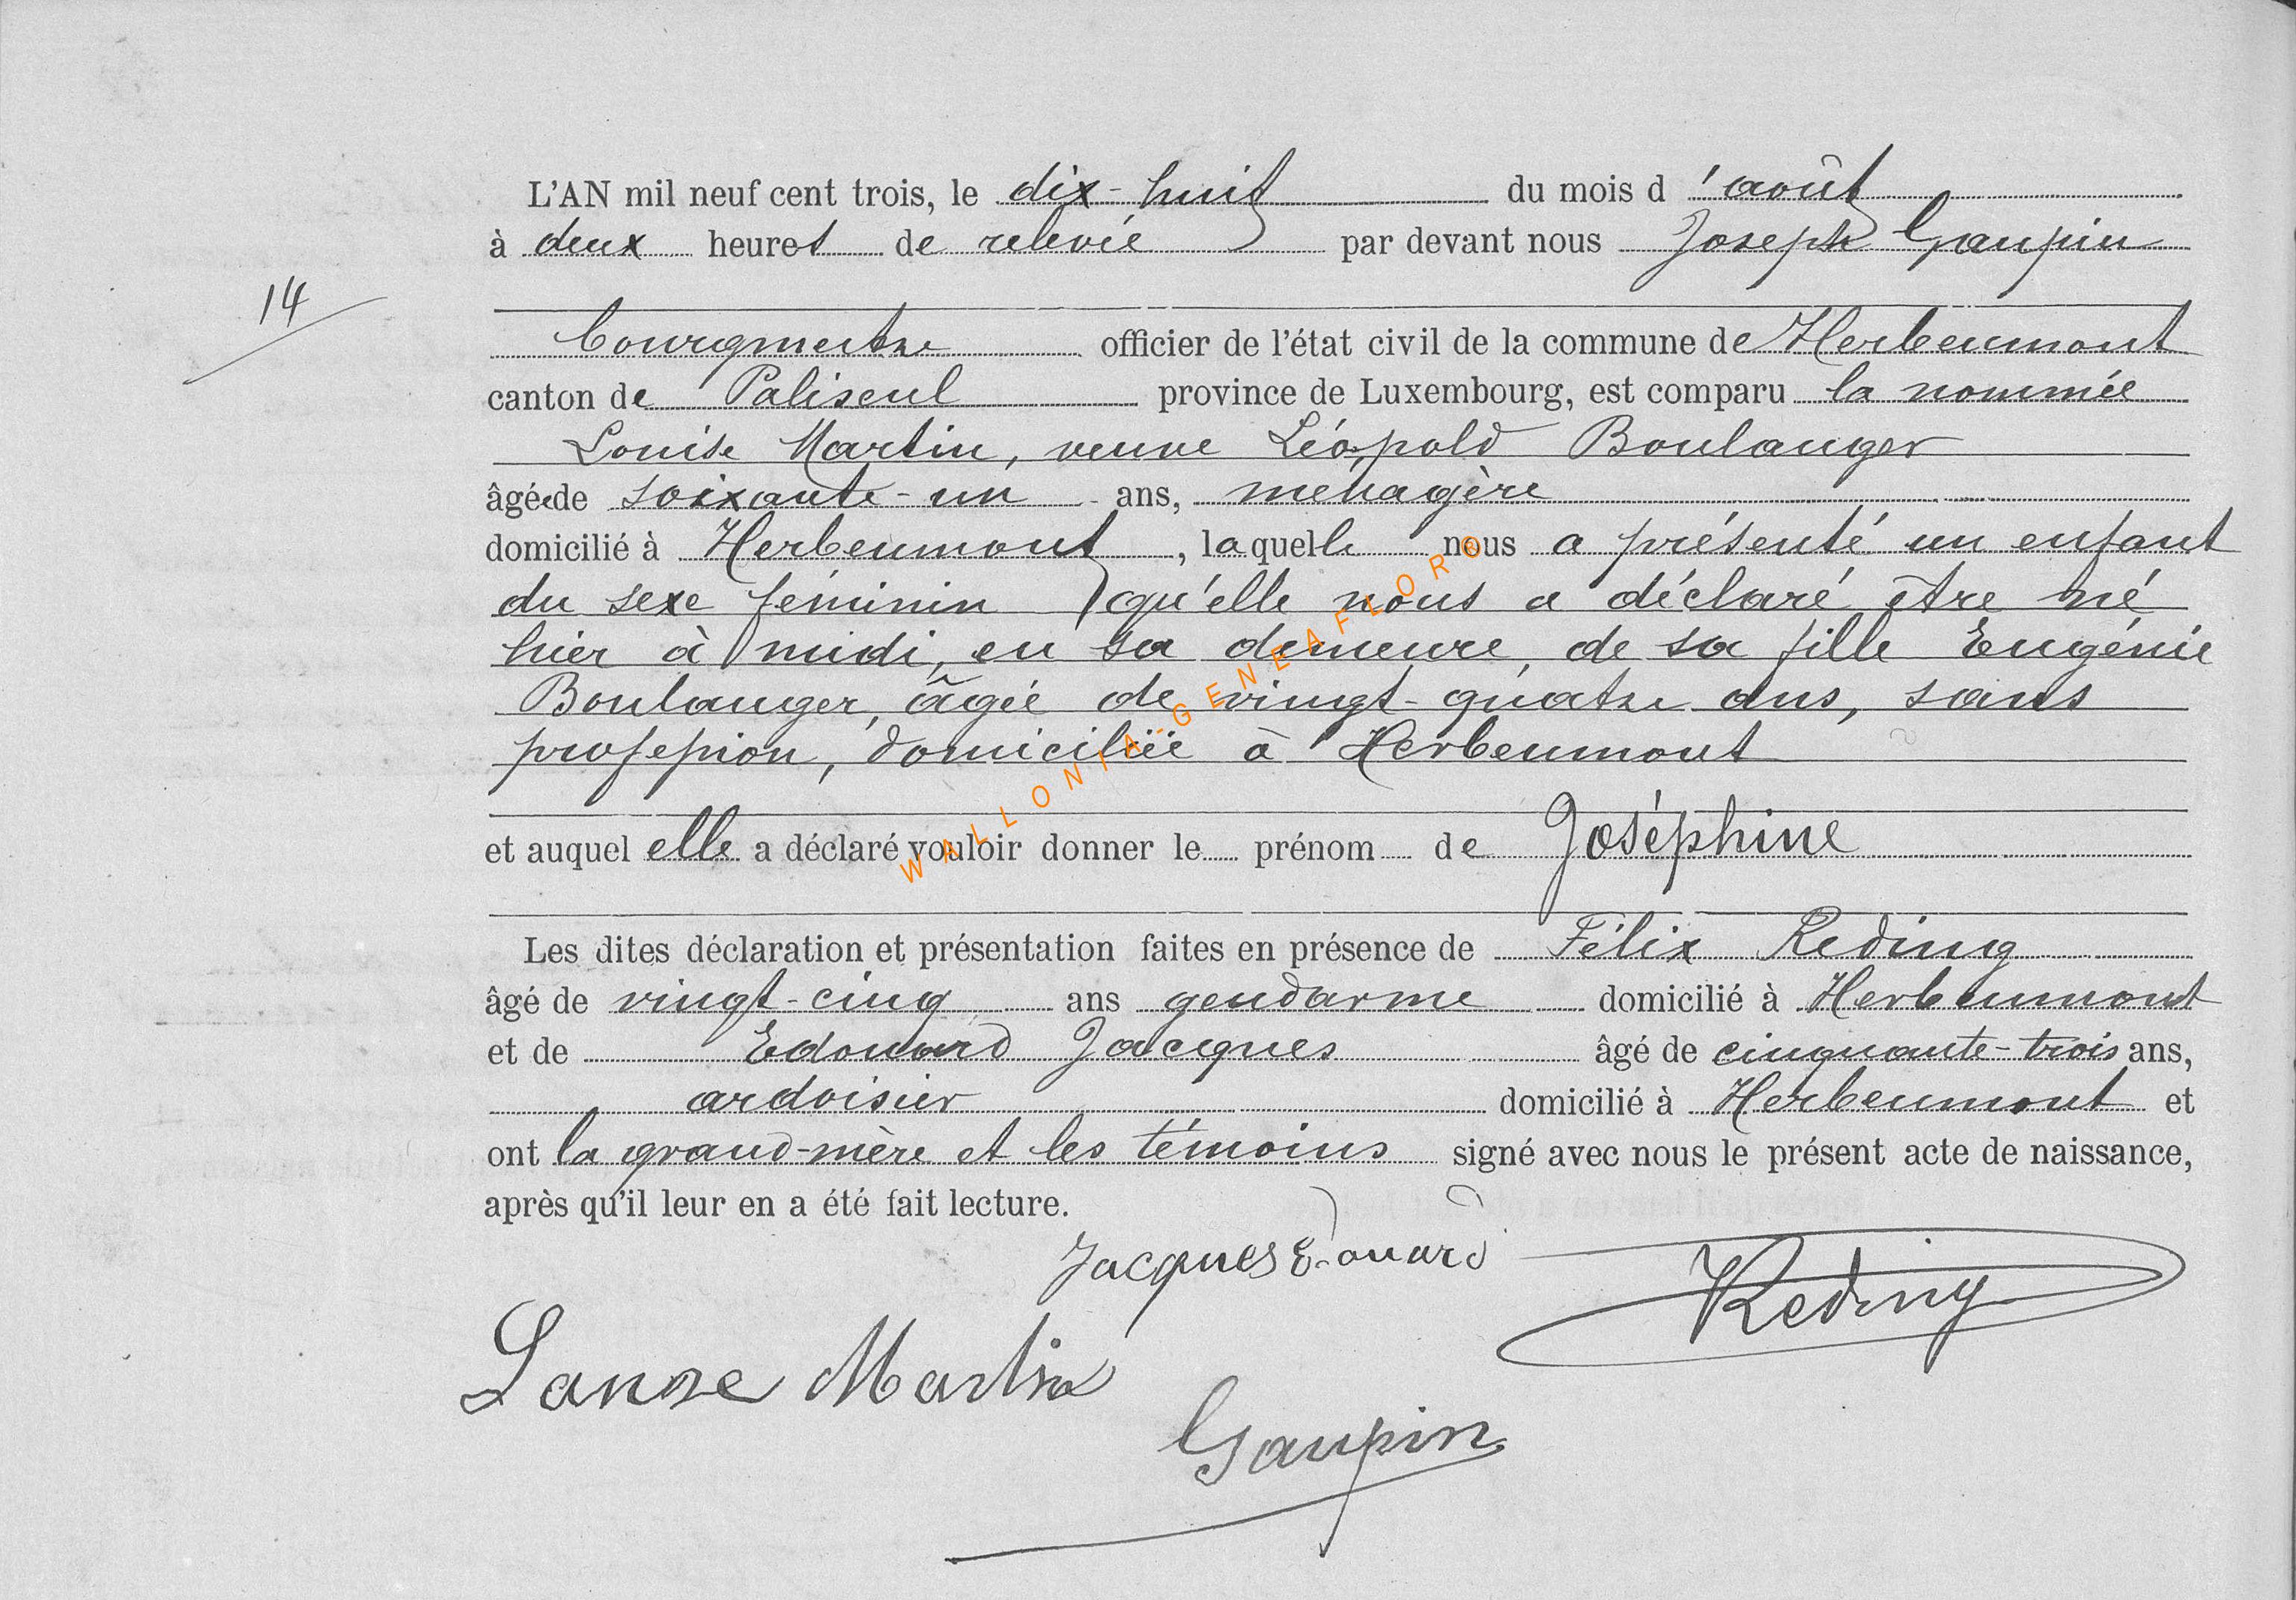 L'AN mil neuf cent trois, le dix-huit du mois d'août
à deux heures de relevée par devant nous Joseph Gaupin
14
bourgmestre officier de l'état civil de la commune de Herbeumont
canton de Paliseul province de Luxembourg, est comparu la nommée
Louise Martin, veuve Léopold Boulanger
âgée de soixante-un ans, ménagère
domicilié à Herbeumont, laquelle nous a présenté un enfant
du sexe féminin qu'elle nous a déclaré être né
hier à midi, en sa demeure, de sa fille Eugénie
Boulanger, âgée de vingt-quatre ans, sans
profession, domiciliée à Herbeumont
et auquel elle a déclaré vouloir donner le prénom de Joséphine
Les dites déclaration et présentation faites en présence de Félix Reding
âgé de vingt-cinq ans gendarme domicilié à Herbeumont
et de Edouard Jacques âgé de cinquante-trois ans,
ardoisier domicilié à Herbeumont et
ont la grand-mère et les témoins signé avec nous le présent acte de naissance,
après qu'il leur en a été fait lecture.
Jacques Edouard
Reding
Martin
Gaupin